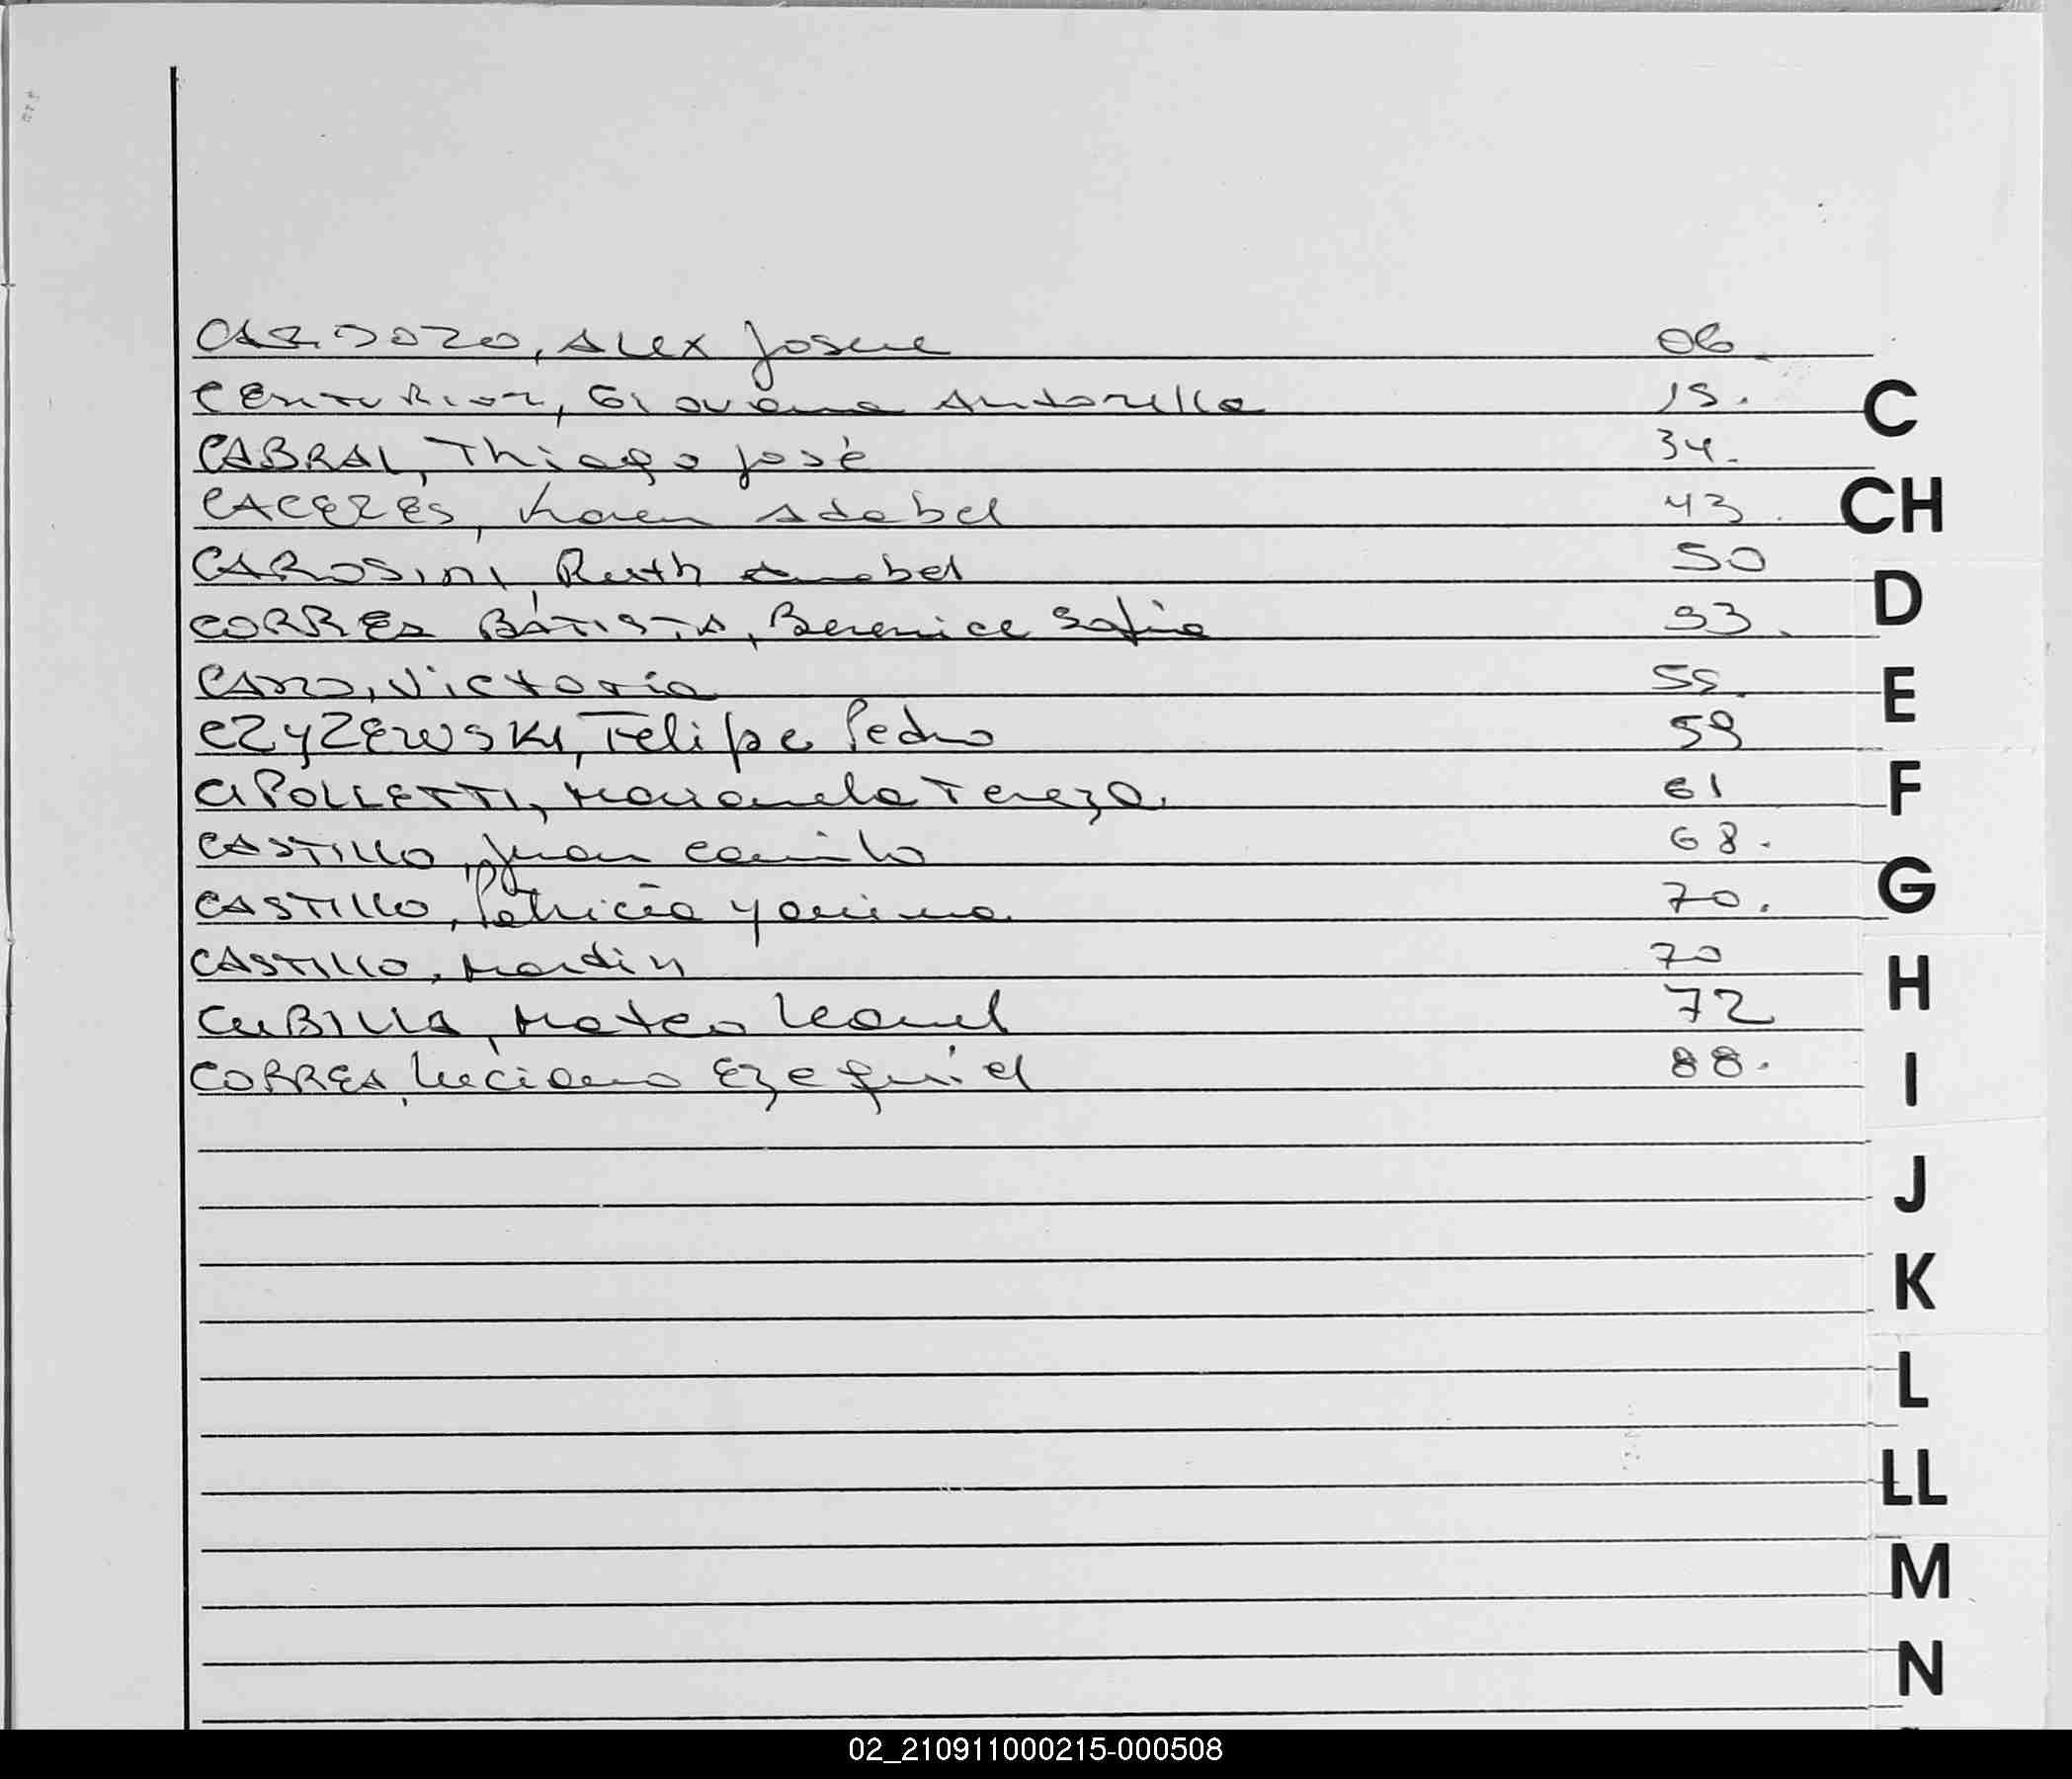 CARDOZO, Alex Josue 06.
CENTURION, Giovana Antonella 15.
C
CABRAL, Thiago José 34.
CACERES, Loren Adabel 43.
CH
CAROSINI, Ruth Anabel 50
D
CORREA BATISTA, Berenice Sofia 53.
CANO, Victoria 55.
E
CZYZEWSKI, Felipe Pedro 59
F
CIPOLLETTI, Marianela Tereza. 61
CASTILLO, Juan Camilo 68.
G
CASTILLO, Patricia Yanina. 70.
CASTILLO, Martin 70
H
CUBILLA, Mateo Leonel 72
CORREA, Luciano Ezequiel 88.
I
J
K
L
LL
M
N
02_210911000215-000508